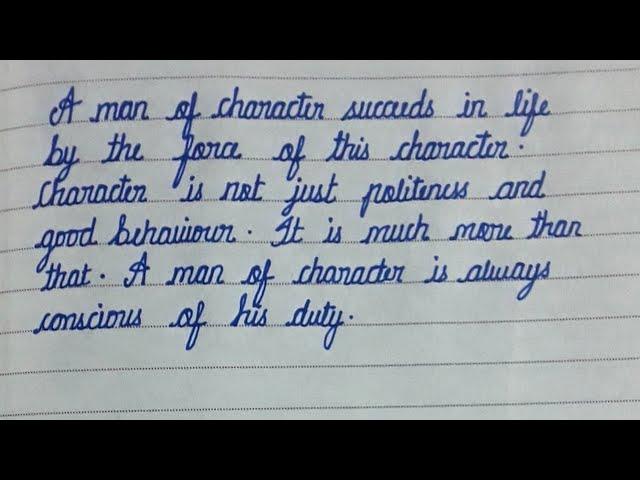 A man of character succeeds in life
by the force of this character.
character is not just politeness and
good behaviour. It is much more than
that. A man of character is always
conscious of his duty.